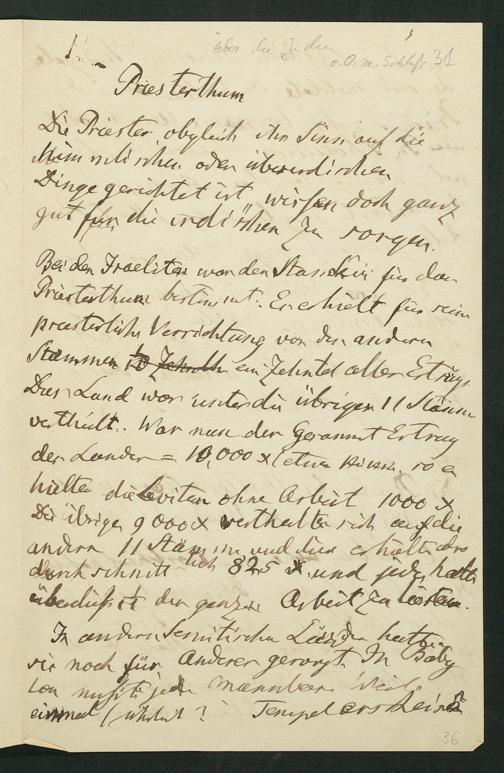 1. über die Juden
o.O. u. Schluß 31
Priesterthum
Die Priester obgleich ihr Sinn auf die
himmlischen oder überirdischen
Dinge gerichtet ist wissen doch ganz
gut für die irdischen zu sorgen.
Bei den Israeliten war der Stamm Levi für das
Priesterthum bestimmt. Er erhielt für seine
priesterliche Verrichtung von den andern
Stämmen ein Zehntel aller Erträge.
Das Land war unter die übrigen 11 Stämme
vertheilt. War nun der Gesammt Ertrag
der Länder = 10,000 x (etwa so er
hielten die Leviten ohne Arbeit 1000 x
Die übrigen 9000 x vertheilten sich auf die
andern 11 Stämme und diese erhielten also
durchschnittlich 825 x und jeder hatte
überdies die ganze Arbeit zu leisten.
In andern Semitischen Ländern hatten
sie noch für Anderes gesorgt. In Baby
lon mußte jede mannbare
einmal ? Tempel erscheinen
36